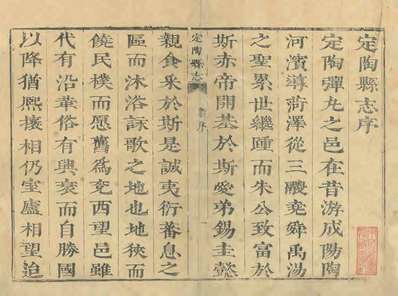 定陶縣志序
定陶彈丸之邑在昔游成陽陶
河濱導菏澤從三朡堯舜禹湯
之聖累世繼踵而朱公致富於
斯赤帝開基於斯愛弟錫圭懿
定陶縣志
序
親食采於斯是誠夷衍蕃息之
區而沐浴詠歌之地也地狹而
饒民樸而愿舊爲兗西望邑雖
代有沿革俗有興衰而自勝國
以降猶熙攘相仍室廬相望迨